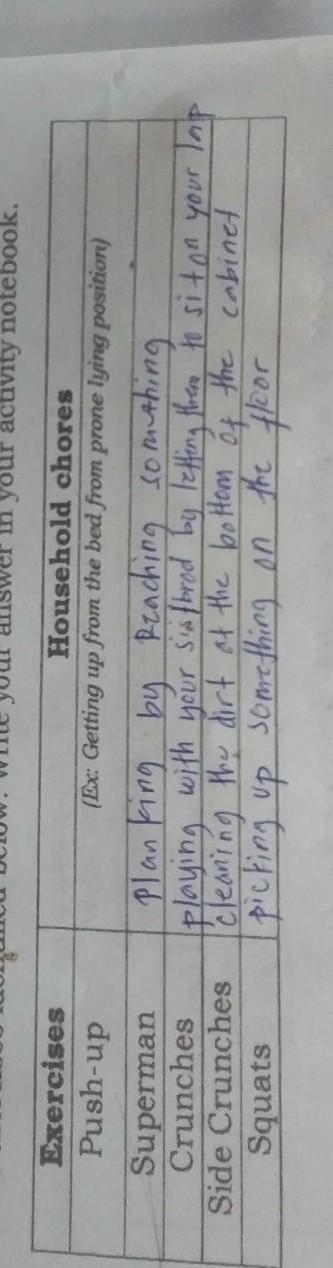 below. Write your answer in your activity notebook.
Exercises Household chores
Push-up (Ex: Getting up from the bed from prone lying position)
Superman planking by Reaching something
Crunches playing with your sis/brod by letting them to sit on your lap
Side Crunches cleaning the dirt at the bottom of the cabinet
Squats picking up something on the floor